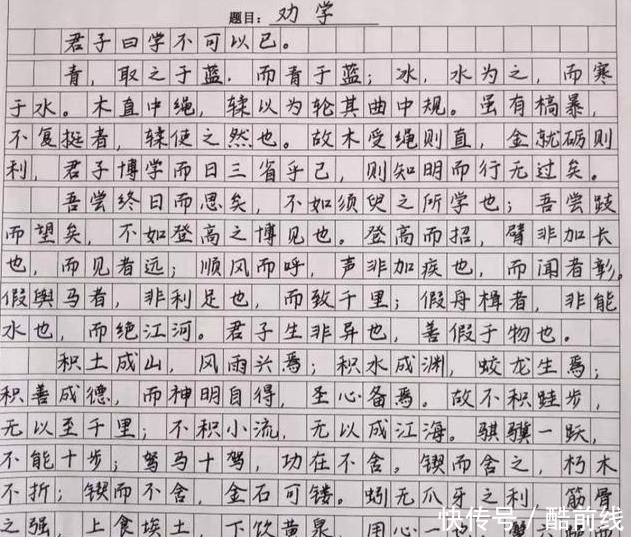 题目：劝学
君子曰学不可以已。
青，取之于蓝．而青于蓝；冰，水为之，而寒
于水。木直中绳，𫐓以为轮其曲中规。虽有槁暴，
不复挺者，𫐓使之然也。故木受绳则直，金就砺则
利，君子博学而日三省乎己，则知明而行无过矣。
吾尝终日而思矣，不如须臾之所学也；吾尝跂
而望矣，不如登高之博见也。登高而招，臂非加长
也，而见者远；顺风而呼，声非加疾也，而闻者彰。
假舆马者，非利足也，而致千里；假舟楫者，非能
水也，而绝江河。君子生非异也，善假于物也。
积土成山，风雨兴焉；积水成渊，蛟龙生焉；
积善成德，而神明自得，圣心备焉。故不积跬步，
无以至千里；不积小流，无以成江海。骐骥一跃，
不能十步；驽马十驾，功在不舍。锲而舍之，朽木
不折；锲而不舍，金石可镂。蚓无爪牙之利，筋骨
之强，上食埃土，下饮黄泉，用心一也
快传号／酷前线